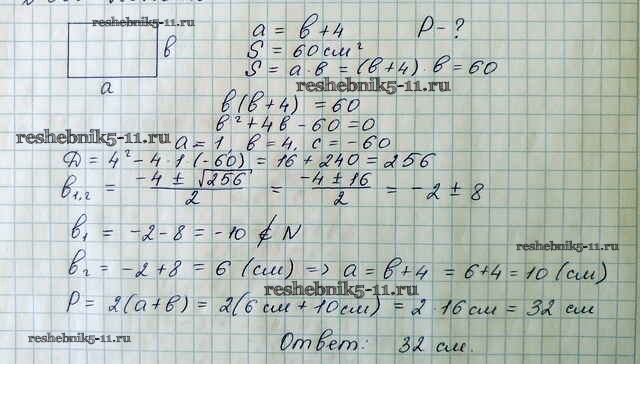 reshebnik5-11.ru
a = b + 4 P - ?
b
S = 60 см²
S = a · b = (b + 4) · b = 60
a
reshebnik5-11.ru
b(b + 4) = 60
b² + 4b - 60 = 0
reshebnik5-11.ru
a = 1, b = 4, c = -60
D = 4² - 4 · 1 (-60) = 16 + 240 = 256
b₁,₂ = (-4 ± √256)/2 = (-4 ± 16)/2 = -2 ± 8
b₁ = -2 - 8 = -10 ∉ N
reshebnik5-11.ru
b₂ = -2 + 8 = 6 (см) => a = b + 4 = 6 + 4 = 10 (см)
reshebnik5-11.ru
P = 2(a + b) = 2(6 см + 10 см) = 2 · 16 см = 32 см
reshebnik5-11.ru
Ответ: 32 см.